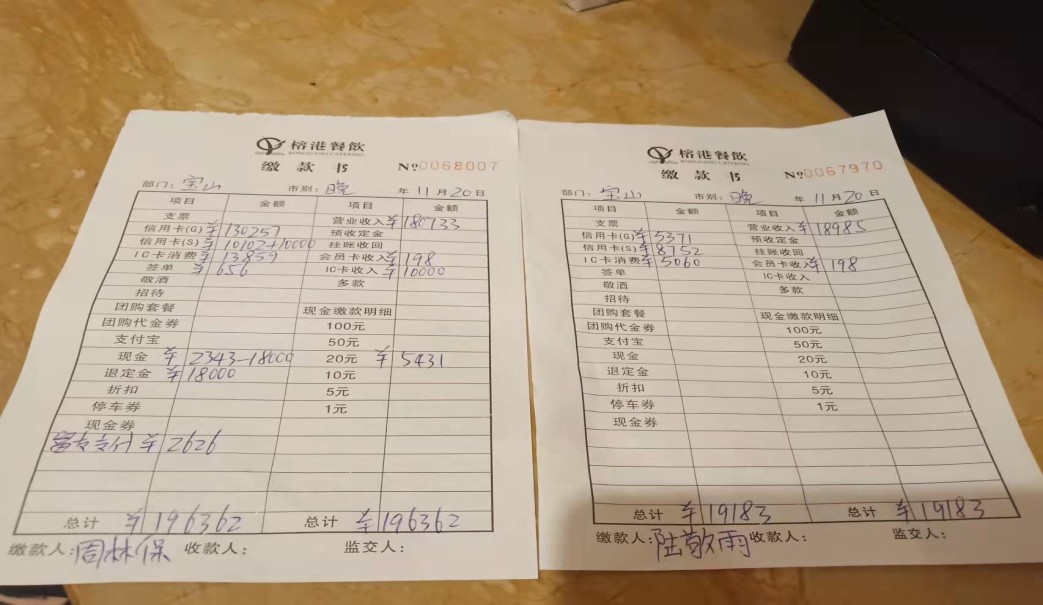 榕港餐飲
RONGGANG CATERING
缴款书 №0068007
部门：宝山 市别：晚 年11月20日
项目 金额 项目 金额
支票 营业收入 ¥180733
信用卡(G) ¥130257 预收定金
信用卡(S) ¥10102+10000 挂账收回
IC卡消费 ¥13859 会员卡收入 ¥198
签单 ¥656 IC卡收入 ¥10000
敬酒 多款
招待
团购套餐 现金缴款明细
团购代金券 100元
支付宝 50元
现金 ¥2343-18000 20元 ¥5431
退定金 ¥18000 10元
折扣 5元
停车券 1元
现金券
富友支付 ¥2626
总计 ¥196362 总计 ¥196362
缴款人：周林保 收款人： 监交人：
榕港餐飲
RONGGANG CATERING
缴款书 №0067970
部门：宝山 市别：晚 年11月20日
项目 金额 项目 金额
支票 营业收入 ¥18985
信用卡(G) ¥5371 预收定金
信用卡(S) ¥8752 挂账收回
IC卡消费 ¥5060 会员卡收入 ¥198
签单 IC卡收入
敬酒 多款
招待
团购套餐 现金缴款明细
团购代金券 100元
支付宝 50元
现金 20元
退定金 10元
折扣 5元
停车券 1元
现金券
总计 ¥19183 总计 ¥19183
缴款人：陆敬雨 收款人： 监交人：